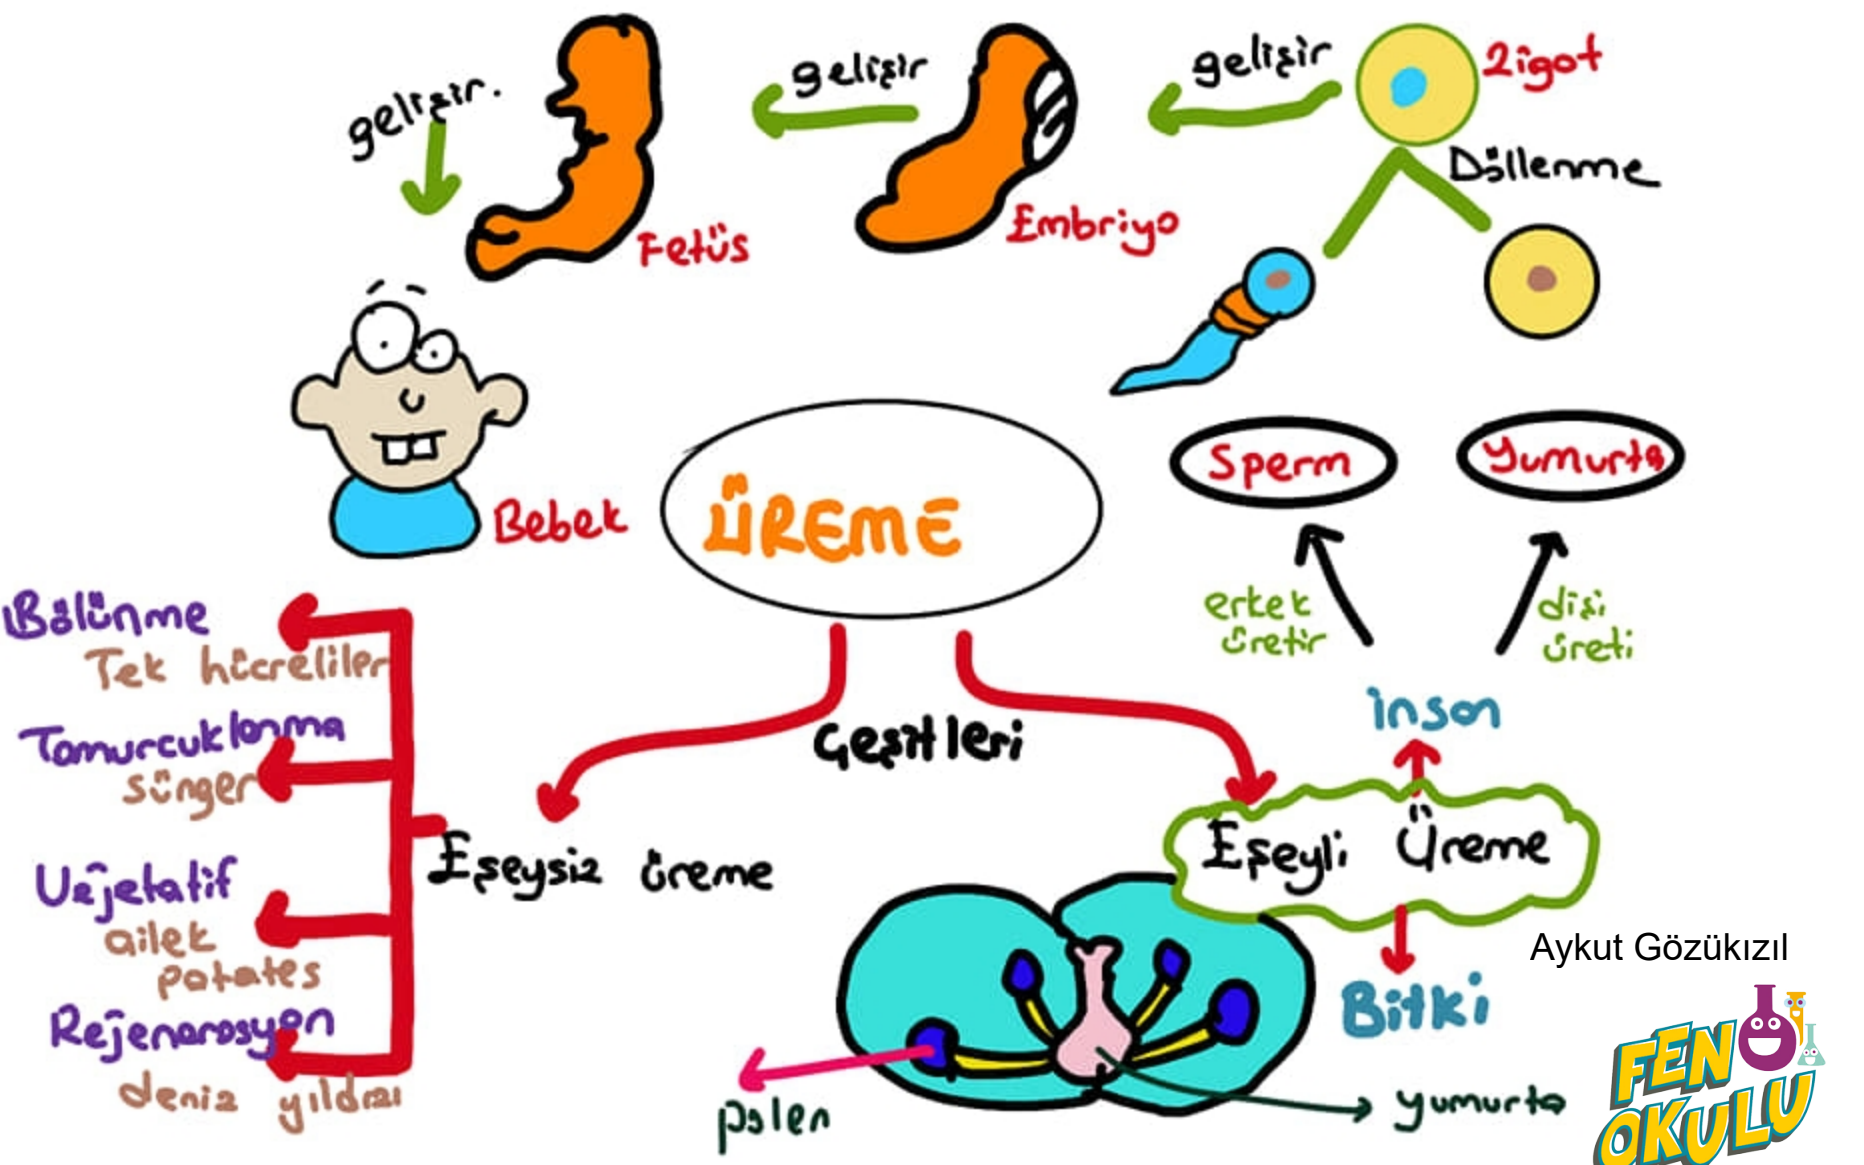 gelişir.
gelişir
gelişir
Zigot
Döllenme
Fetüs
Embriyo
Bebek
ÜREME
Sperm
Yumurta
erkek
üretir
dişi
üreti
insan
Çeşitleri
Eşeyli Üreme
Eşeysiz üreme
Bölünme
Tek hücreliler
Tomurcuklanma
sünger
Vejetatif
ailek
patates
Rejenarasyon
deniz yıldızı
Bitki
polen
yumurta
Aykut Gözükızıl
FEN
OKULU